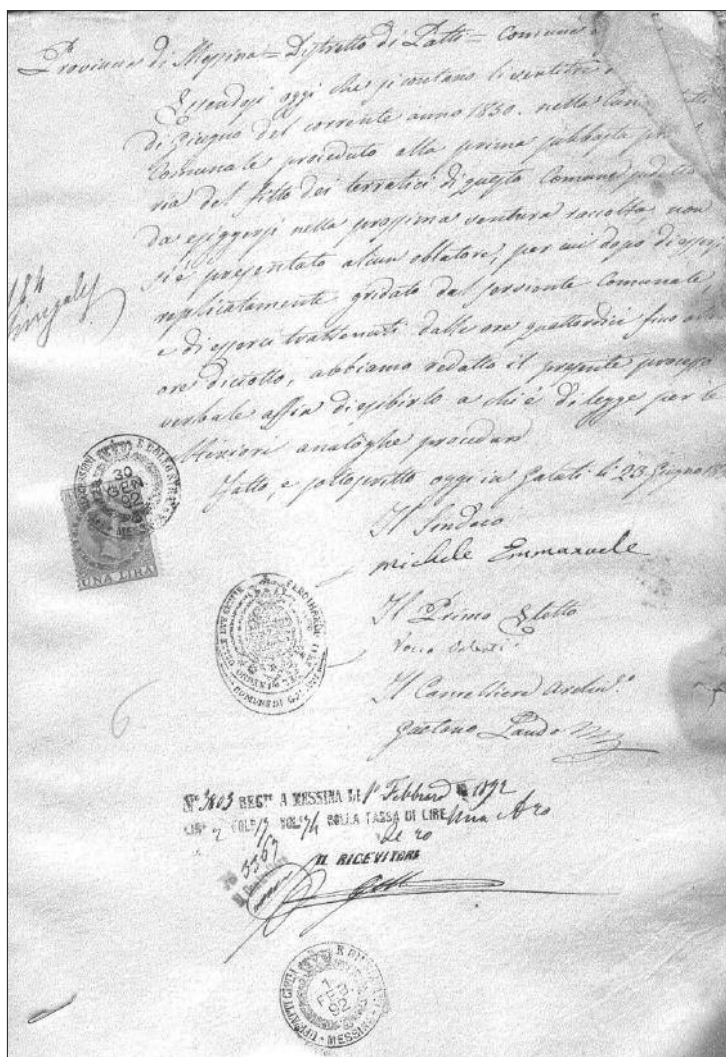 Provincia di Messina = Distretto di Patti = Comune
Essendosi oggi che si contano li ventitre
di Giugno del corrente anno 1850. nella
Comunale proceduto alla prima subbasta
ria del fitto dei terratici di questo Comune sudetto
da esiggersi nella prossima ventura raccolta, non
si è presentato alcun oblatore, per cui dopo di essersi
replicatamente gridato dal serviente Comunale,
e di esserci trattenuti dalle ore quattordici fino alle
ore diciotto, abbiamo redatto il presente processo
verbale affin di esibirlo a chi è di legge per le
ulteriori analoghe procedure
Fatto, e sottoscritto oggi in Galati li 23 Giugno
Il Sindaco
Michele Emmanuele
Il Primo Eletto
Il Cancelliere Archiv.º
Gaetano
UNA LIRA
30
GEN
92
MESSINA
FERDINANDO
COMUNE DI
6
Nº 3803 REGTº A MESSINA LI 1º Febbraro 1892
COLLA TASSA DI LIRE Una
IL RICEVITORE
ATTI CIVILI
1
FEB.
92
MESSINA